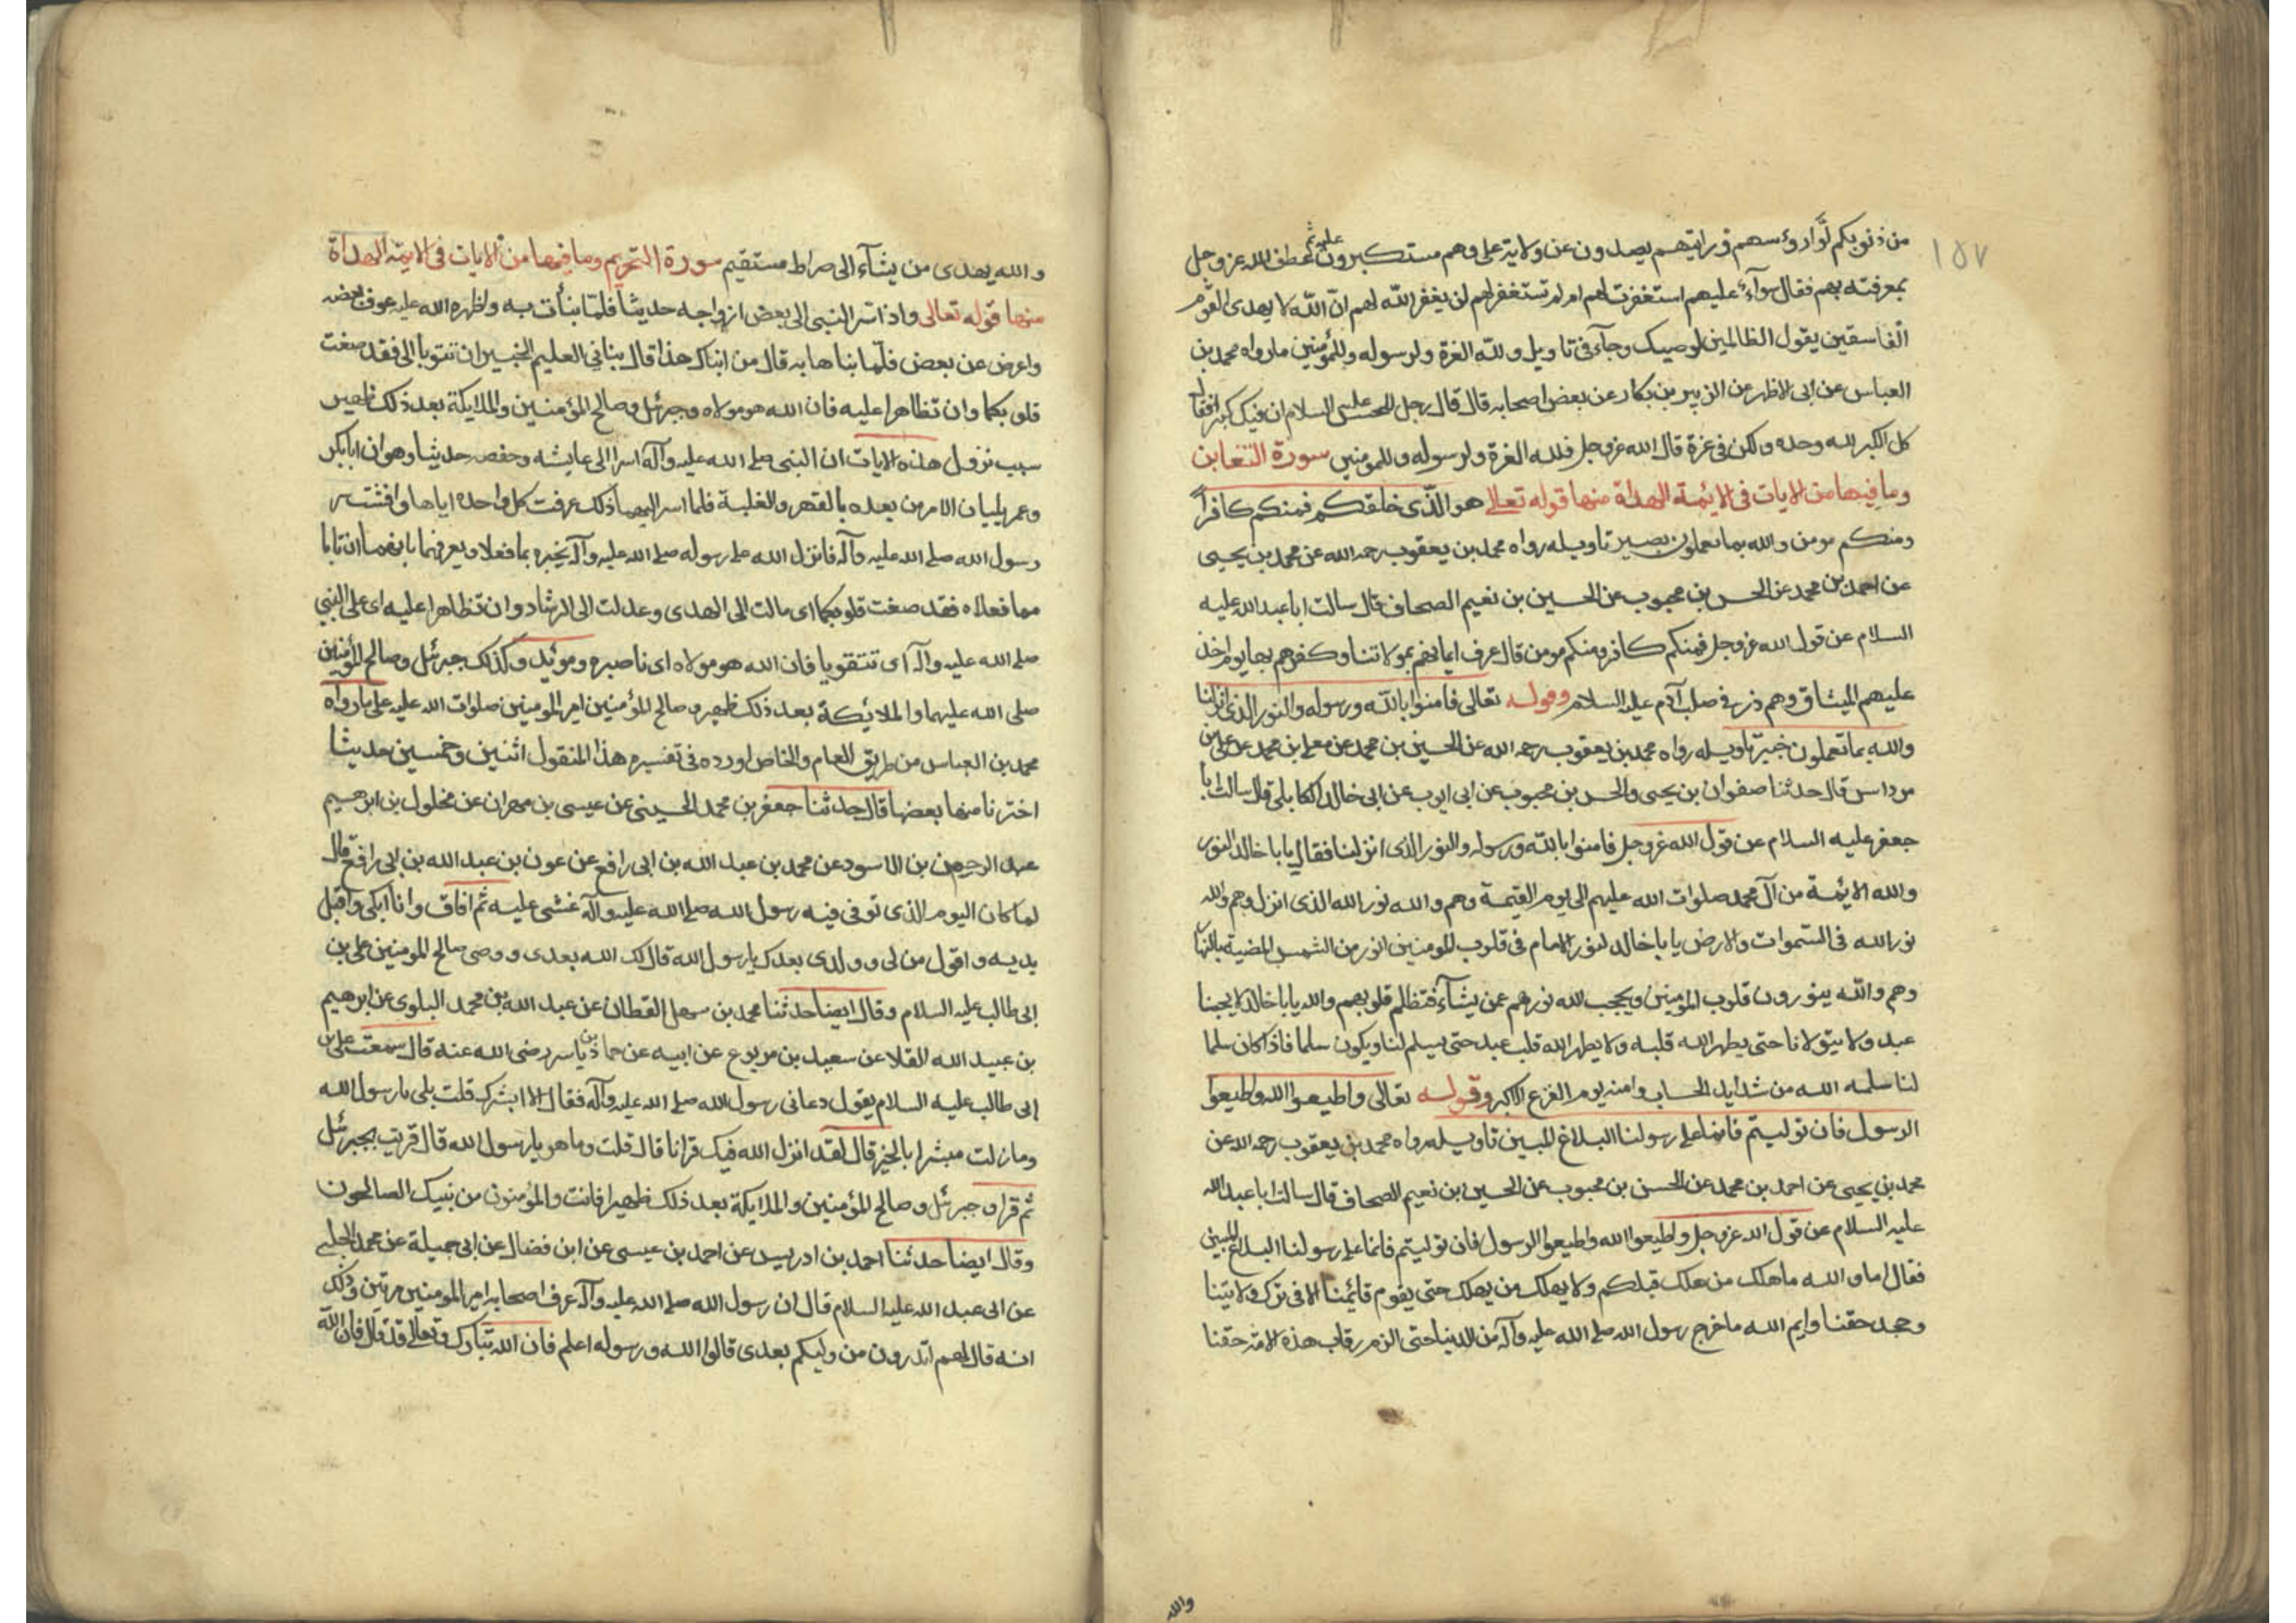 ١٥٧
من ذنوبكم لووا رؤسهم ورايتهم يصدون عن ولاية علي وهم مستكبرون عليه ثم عطف الله عز وجل
بمعرفته بهم فقال سوآء عليهم استغفرت لهم ام لم تستغفر لهم لن يغفر الله لهم ان الله لا يهدى القوم
الفاسقين يقول الظالمين لوصيك وجآء فى تاويل ولله العزة ولرسوله وللمؤمنين ما رواه محمد بن
العباس عن ابى الازهر عن الزبير بن بكار عن بعض اصحابه قال قال رجل للحسن عليه السلام ان فيك كبرا فقال
كل الكبر لله وحده ولكن فى عزة قال الله عز وجل فلله العزة ولرسوله وللمومنين سورة التغابن
وما فيها من الايات فى الايمة الهداة منها قوله تعالى هو الذى خلقكم فمنكم كافرا
ومنكم مومن والله بما تعملون بصير تاويله رواه محمد بن يعقوب رحمه الله عن محمد بن يحيى
عن احمد بن محمد عن الحسن بن محبوب عن الحسين بن نعيم الصحاف قال سالت ابا عبد الله عليه
السلام عن قول الله عز وجل فمنكم كافر ومنكم مومن قال عرف ايمانهم بمولاتنا وكفرهم بها يوم اخذ
عليهم الميثاق وهم ذر فى صلب آدم عليه السلام وقوله تعالى فامنوا بالله ورسوله والنور الذى انزلنا
والله بما تعملون خبير تاويله رواه محمد بن يعقوب رحمه الله عن الحسين بن محمد عن معلى بن محمد عن على بن
مرداس قال حدثنا صفوان بن يحيى والحسن بن محبوب عن ابى ايوب عن ابى خالد الكابلى قال سالت ابا
جعفر عليه السلام عن قول الله عز وجل فامنوا بالله ورسوله والنور الذى انزلنا فقال يابا خالد النور
والله الايمة من آل محمد صلوات الله عليهم الى يوم القيمة وهم والله نور الله الذى انزل وهم والله
نور الله فى السموات والارض يابا خالد لنور الامام فى قلوب المومنين انور من الشمس المضية بالنهار
وهم والله ينورون قلوب المؤمنين ويحجب الله نورهم عمن يشآء فتظلم قلوبهم والله يابا خالد لا يحبنا
عبد ولا يتولانا حتى يطهر الله قلبه ولا يطهر الله قلب عبد حتى يسلم لنا ويكون سلما فاذا كان سلما
لنا سلمه الله من شدايد الحساب وامنه يوم الفزع الاكبر وقوله تعالى واطيعوا الله واطيعوا
الرسول فان توليتم فانما على رسولنا البلاغ المبين تاويله رواه محمد بن يعقوب رحمه الله عن
محمد بن يحيى عن احمد بن محمد عن الحسن بن محبوب عن الحسين بن نعيم الصحاف قال سالت ابا عبد الله
عليه السلام عن قول الله عز وجل واطيعوا الله واطيعوا الرسول فان توليتم فانما على رسولنا البلاغ المبين
فقال اما والله ما هلك من هلك قبلكم ولا يهلك من يهلك حتى يقوم قائمنا الا فى ترك ولايتنا
وجحد حقنا وايم الله ما خرج رسول الله صلى الله عليه وآله من الدنيا حتى الزم رقاب هذه الامة حقنا
والله
والله يهدى من يشآء الى صراط مستقيم سورة التحريم وما فيها من الايات فى الايمة الهداة
منها قوله تعالى واذا اسر النبى الى بعض ازواجه حديثا فلما نبأت به واظهره الله عليه عرف بعضه
واعرض عن بعض فلما نباها به قال من انباك هذا قال نبانى العليم الخبير ان تتوبا الى فقد صغت
قلوبكما وان تظاهرا عليه فان الله هو مولاه وجبرئل وصالح المؤمنين والملايكة بعد ذلك ظهير
سبب نزول هذه الايات ان النبى صلى الله عليه وآله اسر الى عايشه وحفصه حديثا وهو ان ابابكر
وعمر يليان الامر من بعده بالقهر والغلبة فلما اسر اليهما ذلك عرفت كل واحدة اياها وافشت سر
رسول الله صلى الله عليه وآله فانزل الله على رسوله صلى الله عليه وآله يخبره بما فعلا ويعرفهما بانهما ان تابا
مما فعلاه فقد صغت قلوبكما اى مالت الى الهدى وعدلت الى الرشاد وان تظاهرا عليه اى على النبي
صلى الله عليه وآله اى تتقويا فان الله هو مولاه اى ناصره وموئيده وكذلك جبرئل وصالح المؤمنين
صلى الله عليهما والملائيكة بعد ذلك ظهير وصالح المؤمنين امير المومنين صلوات الله عليه على ما رواه
محمد بن العباس من طريق العام والخاص اورده فى تفسيره هذا المنقول اثنين وخمسين حديثا
اخترنا منها بعضها قال حدثنا جعفر بن محمد الحسينى عن عيسى بن مهران عن مخلول بن ابرهيم
عبد الرحمن بن الاسود عن محمد بن عبد الله بن ابى رافع عن عون بن عبد الله بن ابى رافع قال
لما كان اليوم الذى توفى فيه رسول الله صلى الله عليه وآله غشى عليه ثم افاق وانا ابكى واقبل
يديه واقول من لى وولدى بعدك يارسول الله قال لك الله بعدى ووصى صالح المومنين على بن
ابى طالب عليه السلام وقال ايضا حدثنا محمد بن سهل القطان عن عبد الله بن محمد البلوى عن ابرهيم
بن عبيد الله القلا عن سعيد بن مربوع عن ابيه عن عمار بن ياسر رضى الله عنه قال سمعت على بن
ابى طالب عليه السلام يقول دعانى رسول الله صلى الله عليه وآله فقال الا ابشرك قلت بلى يارسول الله
ومازلت مبشرا بالخير قال لقد انزل الله فيك قرانا قال قلت وما هو يارسول الله قال قرنت بجبرئل
ثم قرا وجبرئل وصالح المؤمنين والملايكة بعد ذلك ظهيرا فانت والمؤمنون من بنيك الصالحون
وقال ايضا حدثنا احمد بن ادريس عن احمد بن عيسى عن ابن فضال عن ابى جميلة عن محمد الحلبى
عن ابى عبد الله عليه السلام قال ان رسول الله صلى الله عليه وآله عرف اصحابه امير المومنين مرتين وذلك
انه قال لهم اتدرون من وليكم بعدى قالوا الله ورسوله اعلم فان الله تبارك وتعالى قد قال فان الله